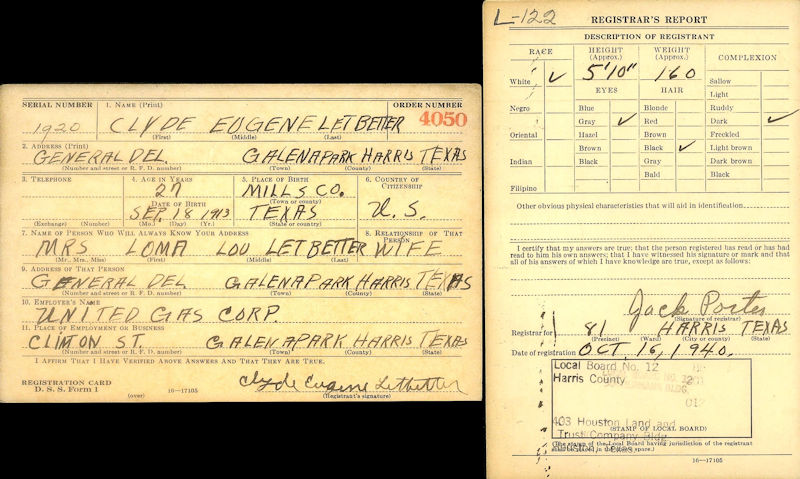 SERIAL NUMBER 1. NAME (Print) ORDER NUMBER
1920 CLYDE EUGENE LETBETTER 4050
(First) (Middle) (Last)
2. ADDRESS (Print)
GENERAL DEL. GALENA PARK HARRIS TEXAS
(Number and street or R. F. D. number) (Town) (County) (State)
3. TELEPHONE 4. AGE IN YEARS 5. PLACE OF BIRTH 6. COUNTRY OF CITIZENSHIP
27 MILLS CO.
DATE OF BIRTH (Town or county)
SEP. 18 1913 TEXAS U.S.
(Exchange) (Number) (Mo.) (Day) (Yr.) (State or country)
7. NAME OF PERSON WHO WILL ALWAYS KNOW YOUR ADDRESS 8. RELATIONSHIP OF THAT PERSON
MRS LOMA LOU LETBETTER WIFE
(Mr., Mrs., Miss) (First) (Middle) (Last)
9. ADDRESS OF THAT PERSON
GENERAL DEL. GALENA PARK HARRIS TEXAS
(Number and street or R. F. D. number) (Town) (County) (State)
10. EMPLOYER'S NAME
UNITED GAS CORP.
11. PLACE OF EMPLOYMENT OR BUSINESS
CLINTON ST. GALENA PARK HARRIS TEXAS
(Number and street or R. F. D. number) (Town) (County) (State)
I AFFIRM THAT I HAVE VERIFIED ABOVE ANSWERS AND THAT THEY ARE TRUE.
REGISTRATION CARD
D. S. S. Form 1 16—17105 Clyde Eugene Letbetter
(over) (Registrant's signature)
L-122 REGISTRAR'S REPORT
DESCRIPTION OF REGISTRANT
RACE HEIGHT (Approx.) WEIGHT (Approx.) COMPLEXION
White ✓ 5'10" 160 Sallow
EYES HAIR Light
Negro Blue Blonde Ruddy
Gray ✓ Red Dark ✓
Oriental Hazel Brown Freckled
Brown Black ✓ Light brown
Indian Black Gray Dark brown
Bald Black
Filipino
Other obvious physical characteristics that will aid in identification
I certify that my answers are true; that the person registered has read or has had
read to him his own answers; that I have witnessed his signature or mark and that
all of his answers of which I have knowledge are true, except as follows:
Jack Porter
(Signature of registrar)
Registrar for 81 HARRIS TEXAS
(Precinct) (Ward) (City or county) (State)
Date of registration OCT. 16, 1940.
Local Board No. 12
Harris County
403 Houston Land and
(STAMP OF LOCAL BOARD)
Trust Company Bldg.
(The stamp of the Local Board having jurisdiction of the registrant
shall be placed in the above space.)
Houston Texas
16—17105